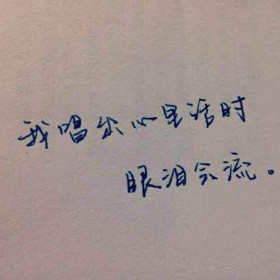 我唱出心里话时
眼泪会流。